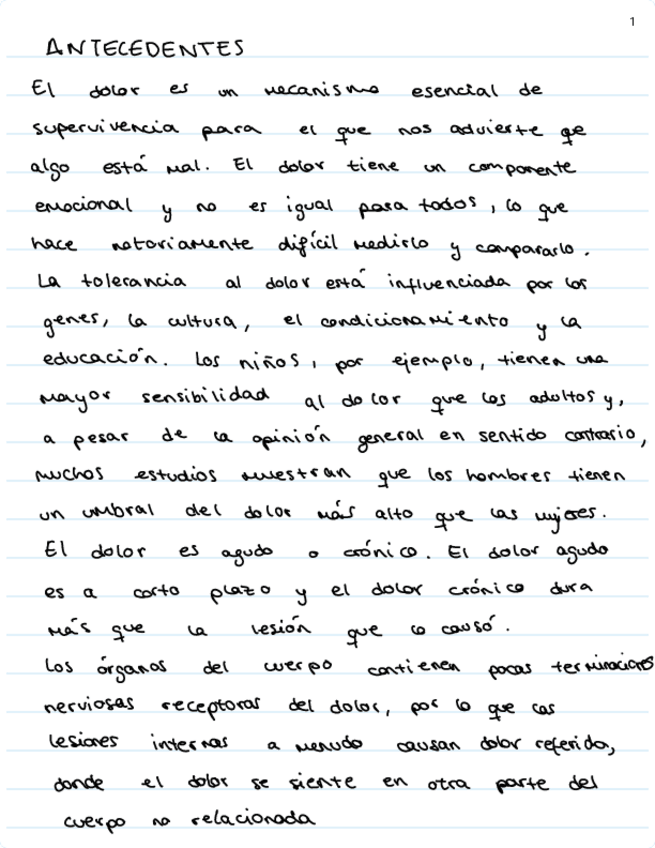 1
ANTECEDENTES
El dolor es un mecanismo esencial de
supervivencia para el que nos advierte qe
algo está mal. El dolor tiene un componente
emocional y no es igual para todos, lo que
hace notoriamente difícil medirlo y compararlo.
La tolerancia al dolor está influenciada por los
genes, la cultura, el condicionamiento y la
educación. Los niños, por ejemplo, tienen una
mayor sensibilidad al dolor que los adultos y,
a pesar de la opinión general en sentido contrario,
muchos estudios muestran que los hombres tienen
un umbral del dolor más alto que las mujeres.
El dolor es agudo o crónico. El dolor agudo
es a corto plazo y el dolor crónico dura
más que la lesión que lo causó.
Los órganos del cuerpo contienen pocas terminaciones
nerviosas receptoras del dolor, por lo que las
lesiones internas a menudo causan dolor referido,
donde el dolor se siente en otra parte del
cuerpo no relacionada